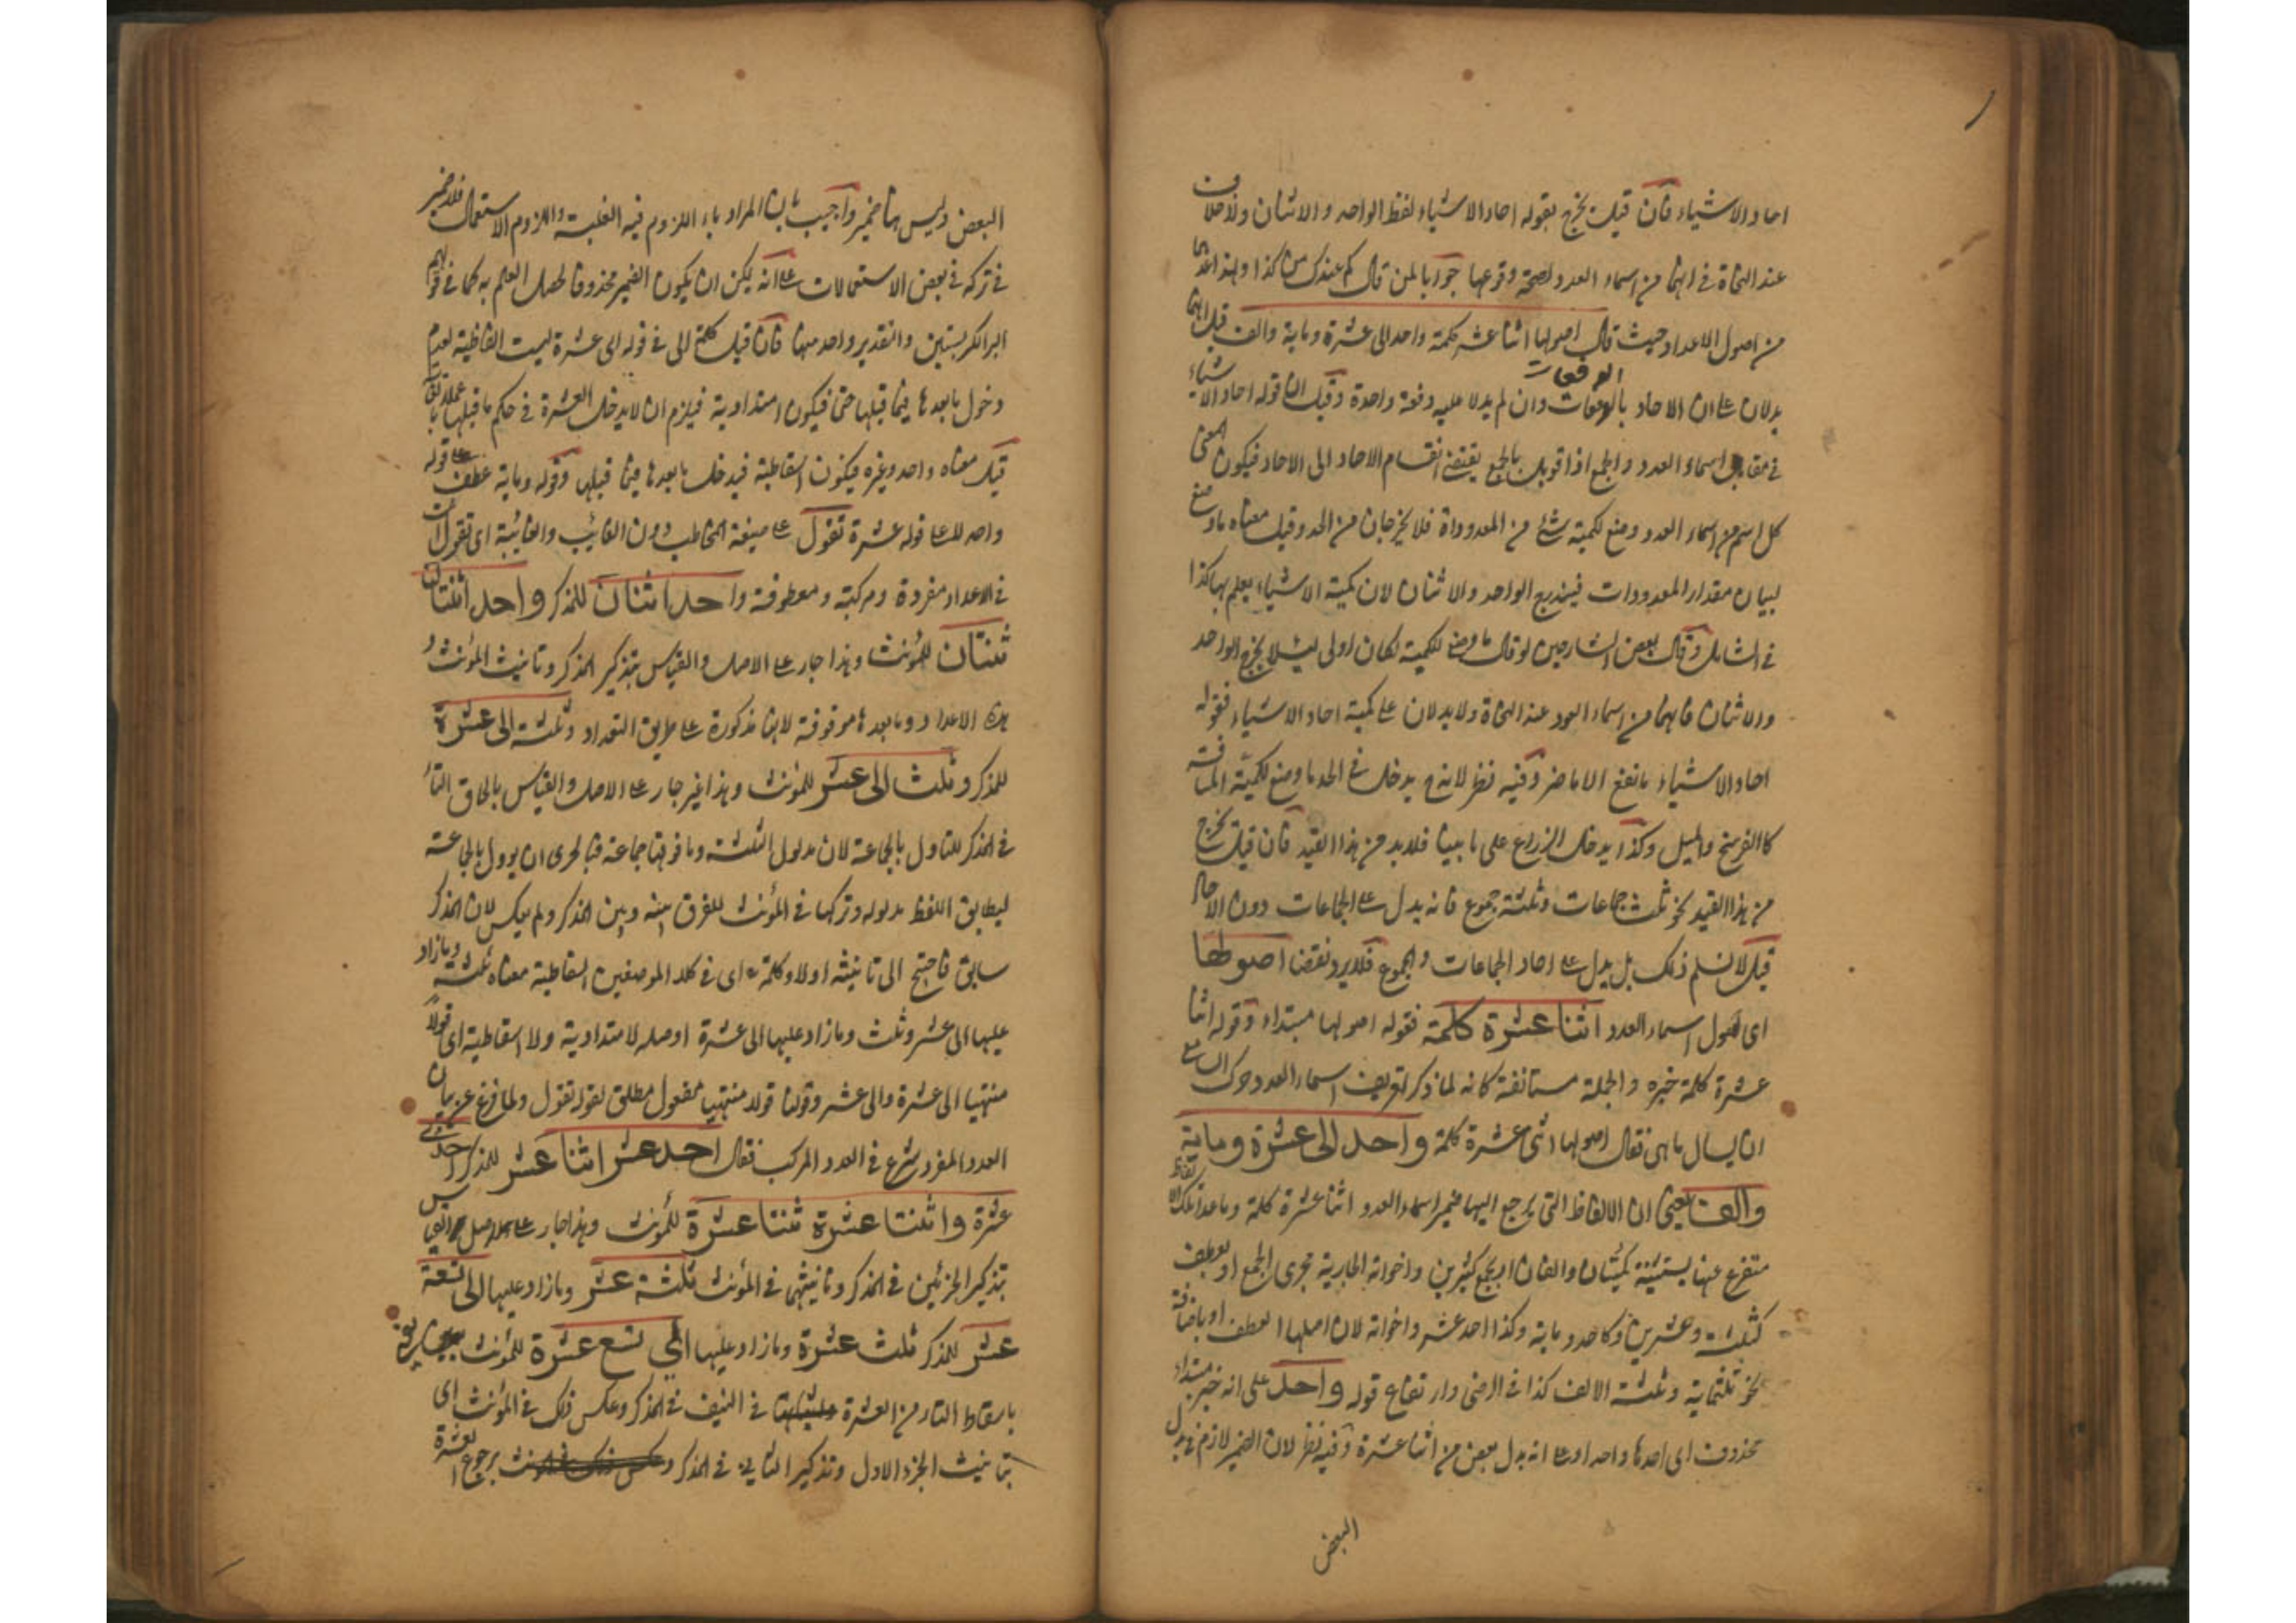 احاد الاشياء فان قيل يخرج بقوله احاد الاشياء لفظ الواحد والاثنان ولا خلاف
عند النحاة في انهما من اسماء العدد لصحة وقوعهما جوابا لمن قال كم عندك من كذا ولهذا عدهما
من اصول الاعداد حيث قال اصولها اثنا عشر كلمة واحد الى عشرة وماية والف قيل انهما
يدلان على ان الاحاد بالدفعات وان لم يدلا عليه دفعة واحدة وقيل ان قوله احاد الاشياء
في مقابل اسماء العدد والجمع اذا قوبل بالجمع يقتضى انقسام الاحاد الى الاحاد فيكون المعنى
كل اسم من اسماء العدد وضع لكمية شئ من المعدوداة فلا يخرجان من الحد وقيل معناه ما وضع
لبيان مقدار المعدودات فيندرج الواحد والاثنان لان كمية الاشياء يعلم بهما كذا
في الشامل وقال بعض الشارحين لو قال ما وضع لكمية لكان اولى ليئلا يخرج الواحد
والاثنان فانهما من اسماء العدد عند النحاة ولا يدلان على كمية احاد الاشياء فقوله
احاد الاشياء مانفع الا ما ضر وفيه نظر لانه ح يدخل في الحد ما وضع لكمية المسافة
كالفرسخ والميل وكذا يدخل الزراع على ما بينا فلا بد من هذا القيد فان قيل يخرج
من هذا القيد نحو ثلث جماعات وثلثة جموع فانه يدل على الجماعات دون الاحاد
قيل لا نسلم ذلك بل يدل على احاد الجماعات والجموع فلا يرد نقضا اصولها
اى اصول اسماء العدد اثنا عشرة كلمة فقوله اصولها مبتداء وقوله اثنا
عشرة كلمة خبره والجملة مستانفة كانه لما ذكر تعريف اسماء العدد حرك السامع
ان يسال ما هى فقال اصولها اثنى عشرة كلمة واحد الى عشرة وماية
والف يعنى ان الالفاظ التى يرجع اليها ضمير اسماء العدد اثنا عشرة كلمة وما عدا تلك الالفاظ
متفرع عنها بتثنية كمئتان والفان او بجمع كعشرين واخواته الجارية مجرى الجمع او بعطف
كثلثة وعشرين وكاحد وماية وكذا احد عشر واخواته لان اصلها العطف او باضافة
نحو ثلثماية وثلثة الالف كذا في الرضى وارتفاع قوله واحد على انه خبر مبتداء
محذوف اى احدها واحد او على انه بدل بعض من اثنا عشرة وفيه نظر لان الضمير لازم في بدل
البعض
البعض وليس هنا ضمير واجيب بان المراد باء اللزوم فيه الغلبة واللزوم الاستعمال فلا ضير
في تركه في بعض الاستعمالات على انه يمكن ان يكون الضمير محذوفا لحصل العلم به كما في قولهم
البر الكر بستين والتقدير واحد منها فان قيل كلمة الى في قوله الى عشرة ليست اسقاطية لعدم
دخول ما بعدها فيما قبلها حتى فيكون امتدادية فيلزم ان لا يدخل العشرة في حكم ما قبلها
قيل معناه واحد وغيره فيكون اسقاطية فيدخل ما بعدها فيما قبلها وقوله وماية عطف على قوله
واحد لا على قوله عشرة تقول على صيغة المخاطب دون الغائب والغائبة اى تقول انت
في الاعداد مفردة ومركبة ومعطوفة واحد اثنان للمذكر واحد اثنتان
ثنتان للمؤنث وهذا جار على الاصل والقياس بتذكير المذكر وتانيث المؤنث و
هذه الاعداد وما بعدها موقوفة لانها مذكورة على طريق التعداد وثلثة الى عشرة
للمذكر وثلث الى عشر للمؤنث وهذا غير جار على الاصل والقياس بالحاق التاء
في المذكر للتاول بالجماعة لان مدلول الثلثة وما فوقها جماعة فبالحرى ان يوول بالجماعة
ليطابق اللفظ مدلوله وتركها في المؤنث للفرق بينه وبين المذكر ولم يعكس لان المذكر
سابق فاحتج الى تانيثه اولا وكلمة الى في كلا الموضعين اسقاطية معناه ثلثة وما زاد
عليها الى عشر وثلث وما زاد عليها الى عشرة او صلة لا امتدادية ولا اسقاطية اى قولا
منتهيا الى عشرة والى عشر وقولنا قولا منتهيا مفعول مطلق لقوله تقول ولما فرغ عن بيان
العدد المفرد شرع في العدد المركب فقال احد عشر اثنا عشر للمذكر احدى
عشرة واثنتا عشرة ثنتا عشرة للمؤنث وهذا جار على الاصل والقياس
بتذكير الجزئين في المذكر وتانيثهما في المؤنث ثلثة عشر وما زاد عليها الى تسعة
عشر للمذكر ثلث عشرة وما زاد عليها الى تسع عشرة للمؤنث
باسقاط التاء من العشرة في النيف في المذكر وعكس ذلك في المؤنث اى
بتانيث الجزء الاول وتذكير الثاني في المذكر برجوع العشرة